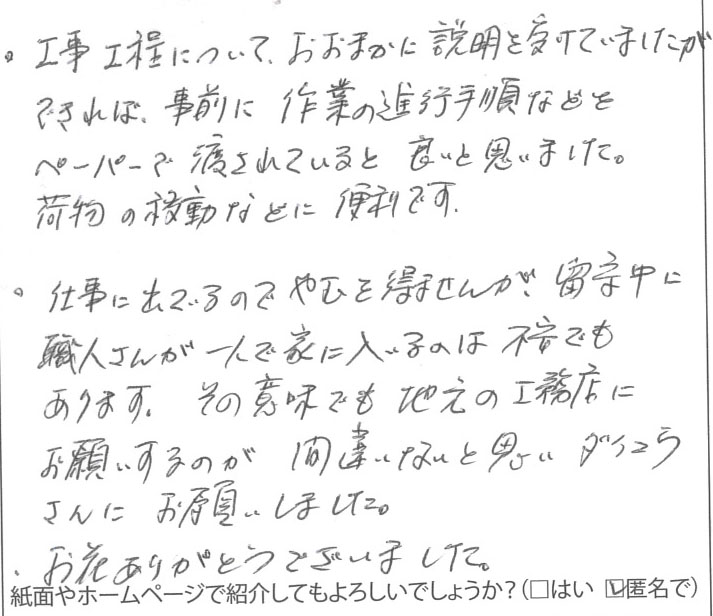 。工事工程について、おおまかに説明を受けていましたが
できれば、事前に作業の進行手順などを
ペーパーで渡されていると良いと思いました。
荷物の移動などに便利です。
。仕事に出ているのでやむを得ませんが、留守中に
職人さんが一人で家に入いるのは不安でも
あります。その意味でも地元の工務店に
お願いするのが間違いないと思い ダイコウ
さんにお願いしました。
・お花ありがとうございました。
紙面やホームページで紹介してもよろしいでしょうか？(□はい ☑匿名で)